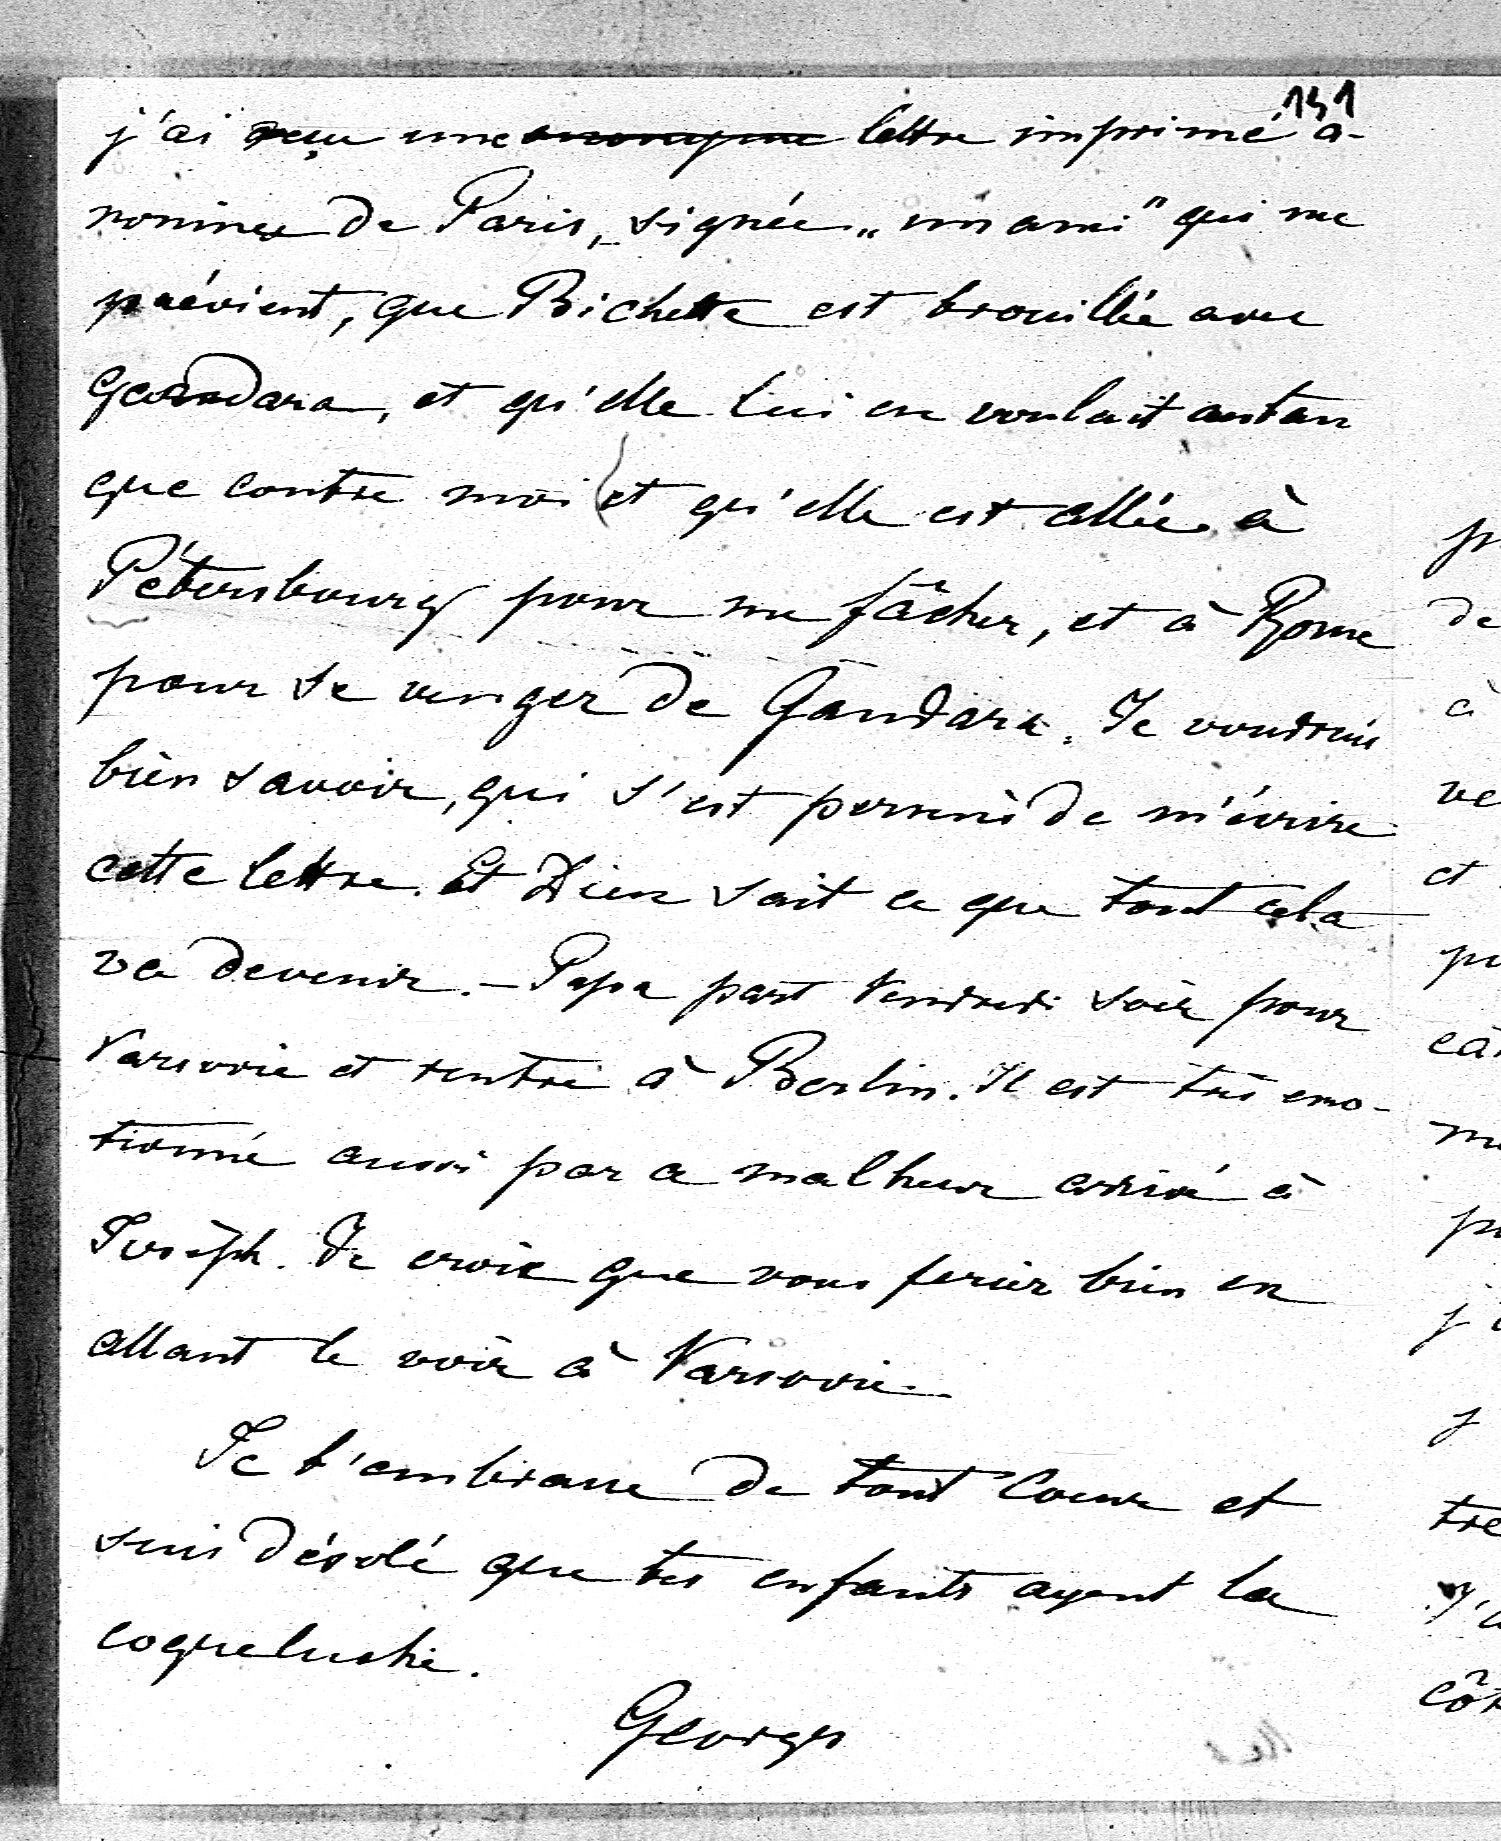 151
j'ai reçu une anonyme lettre imprimé a-
nonime de Paris, signée „un ami" qui me
prévient, que Bichette est brouillée avec
Gandara, et qu'elle lui en voulait autan
que contre moi et qu'elle est allée à
Pétersbourg pour me fâcher, et à Rome
pour se venger de Gandara. Je voudrais
bien savoir, qui s'est permis de m'écrire
cette lettre. Et Dieu sait ce que tout cela
va devenir. – Papa part Vendredi soir pour
Varsovie et rentre à Berlin. Il est très emo-
tionné aussi par ce malheur arrivé à
Joseph. Je crois que vous feriez bien en
allant le voir à Varsovie.
Je t'embrasse de tout coeur et
suis désolé que tes enfants ayent la
coqueluche.
Georges